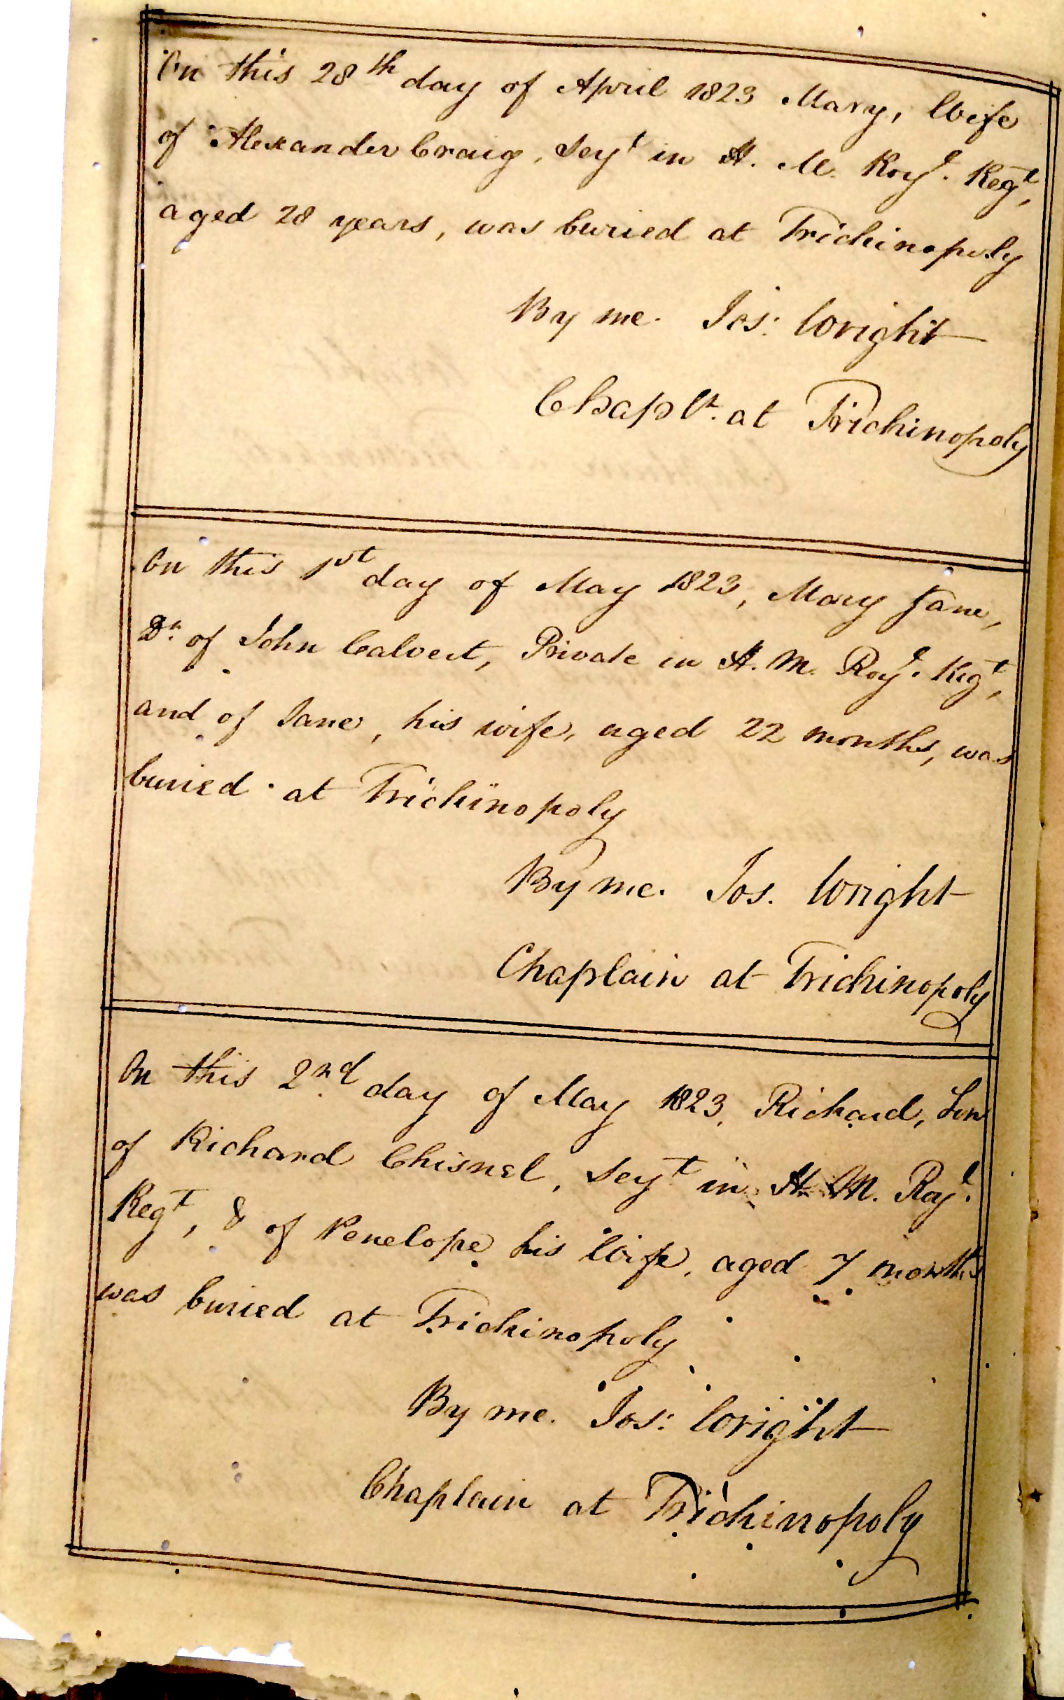 On this 28th day of April 1823 Mary, Wife
of Alexander Craig, Serjt in H. M. Royl. Regt,
aged 28 years, was buried at Trichinopoly
By me. Jos: Wright
Chapln. at Trichinopoly
On this 1st day of May 1823, Mary Jane,
Dr. of John Calvert, Private in H. M. Royl. Regt,
and of Jane, his wife, aged 22 months, was
buried at Trichinopoly
By me. Jos. Wright
Chaplain at Trichinopoly
On this 2nd day of May 1823, Richard, Son
of Richard Chisnel, Serjt in H. M. Royl.
Regt, & of Penelope his Wife, aged 7 months
was buried at Trichinopoly
By me. Jos: Wright
Chaplain at Trichinopoly